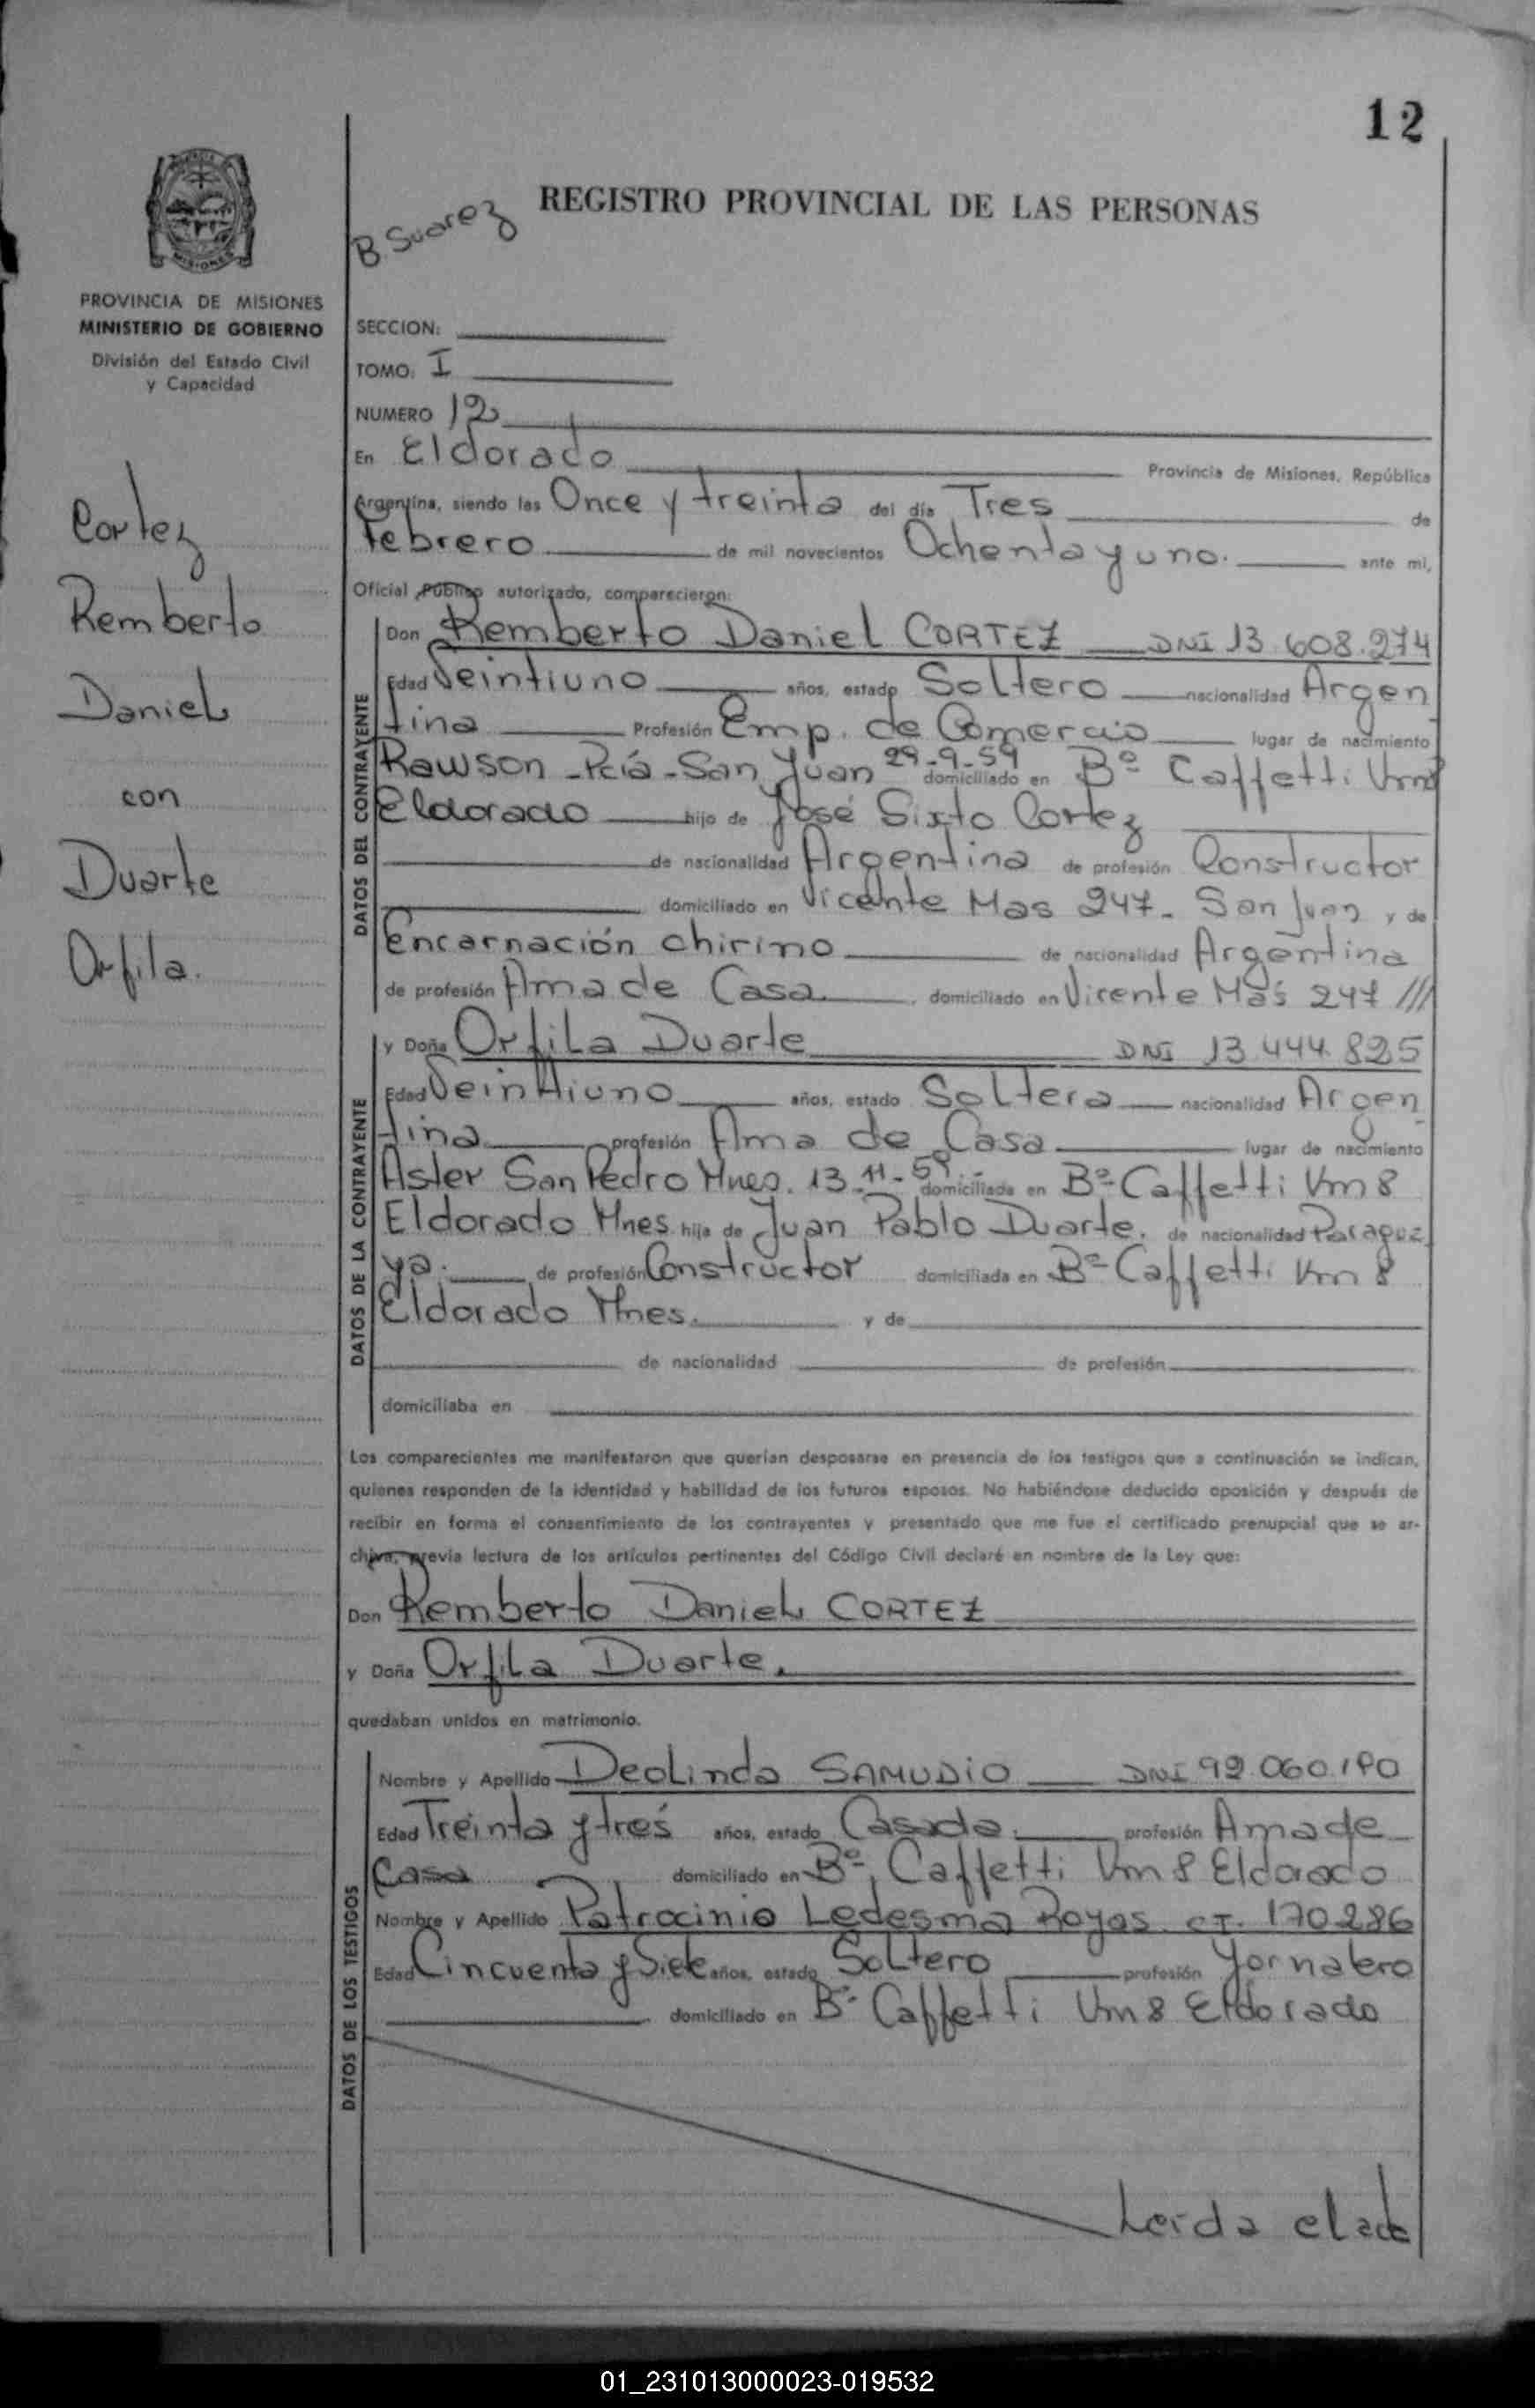 12
REGISTRO PROVINCIAL DE LAS PERSONAS
B. Suarez
MISIONES
PROVINCIA DE MISIONES
MINISTERIO DE GOBIERNO
División del Estado Civil
y Capacidad
SECCION:
TOMO: I
NUMERO 12
En Eldorado Provincia de Misiones, República
Argentina, siendo las Once y treinta del día Tres de
Febrero de mil novecientos Ochenta y uno. ante mi,
Oficial Público autorizado, comparecieron:
Cortez
Remberto
Daniel
con
Duarte
Orfila.
DATOS DEL CONTRAYENTE
Don Remberto Daniel CORTEZ DNI 13.608.274
Edad Veintiuno años, estado Soltero nacionalidad Argen
tina Profesión Emp. de Comercio lugar de nacimiento
Rawson - Pcía - San Juan 29-9-59 domiciliado en Bº Caffetti Km 8
Eldorado hijo de José Sixto Cortez
de nacionalidad Argentina de profesión Constructor
domiciliado en Vicente Mas 247 - San Juan y de
Encarnación Chirino de nacionalidad Argentina
de profesión Ama de Casa domiciliado en Vicente Más 247 ///
DATOS DE LA CONTRAYENTE
y Doña Orfila Duarte DNI 13.444.825
Edad Veintiuno años, estado Soltera nacionalidad Argen
tina profesión Ama de Casa lugar de nacimiento
Aster San Pedro Mnes. 13-11-59 domiciliada en Bº Caffetti Km 8
Eldorado Mnes hija de Juan Pablo Duarte. de nacionalidad Paragua
ya. de profesión Constructor domiciliada en Bº Caffetti Km 8
Eldorado Mnes. y de
de nacionalidad de profesión
domiciliaba en
Los comparecientes me manifestaron que querían desposarse en presencia de los testigos que a continuación se indican,
quienes responden de la identidad y habilidad de los futuros esposos. No habiéndose deducido oposición y después de
recibir en forma el consentimiento de los contrayentes y presentado que me fue el certificado prenupcial que se ar-
chiva, previa lectura de los artículos pertinentes del Código Civil declaré en nombre de la Ley que:
Don Remberto Daniel CORTEZ
y Doña Orfila Duarte.
quedaban unidos en matrimonio.
DATOS DE LOS TESTIGOS
Nombre y Apellido Deolinda SAMUDIO DNI 92.060.190
Edad Treinta y tres años, estado Casada. profesión Ama de
Casa domiciliado en Bº Caffetti Km 8 Eldorado
Nombre y Apellido Patrocinio Ledesma Royas CI. 170.286
Edad Cincuenta y Siete años, estado Soltero profesión Jornalero
domiciliado en Bº Caffetti Km 8 Eldorado
Leida el acta
01_231013000023-019532